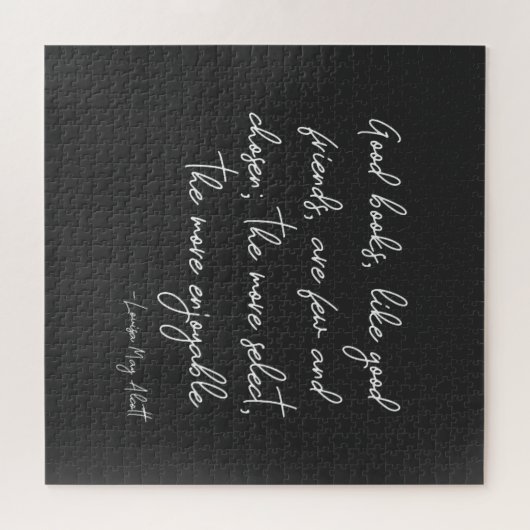 Good books, like good
friends, are few and
chosen; the more select,
the more enjoyable
-Louisa May Alcott